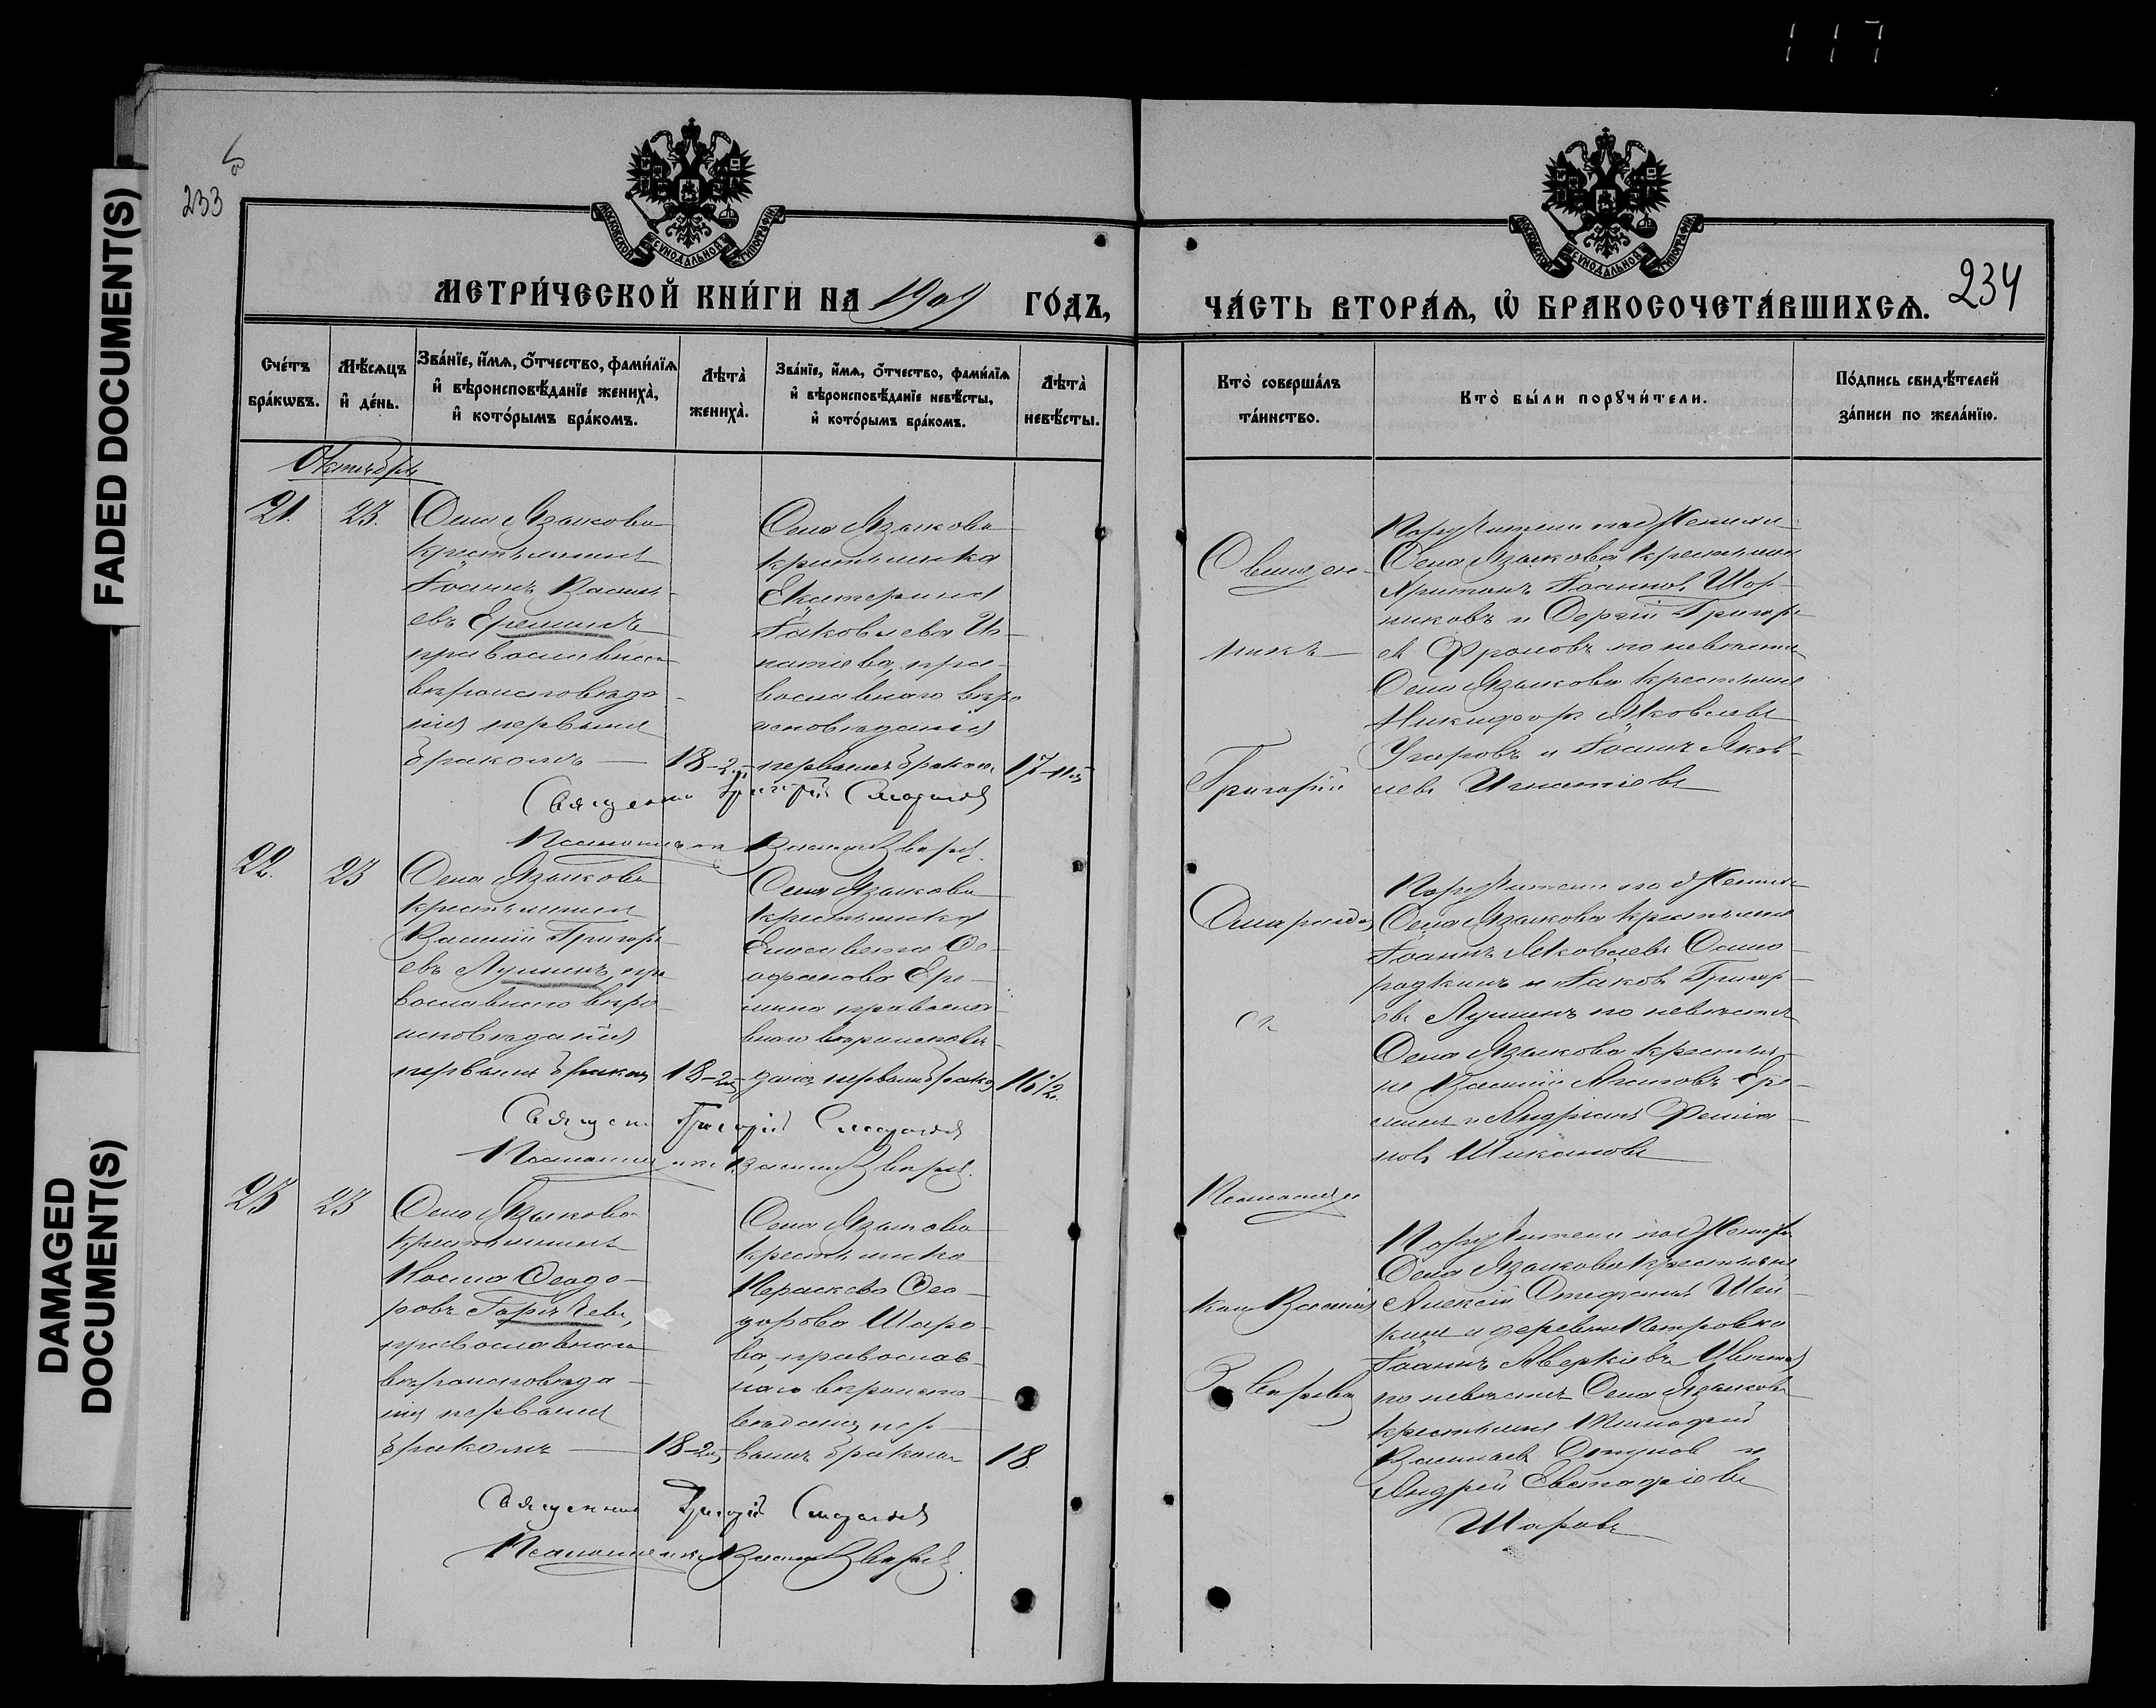 117
FADED DOCUMENT(S)
DAMAGED
DOCUMENT(S)
233
МОСКОВСКОЙ СУНОДАЛЬНОЙ ТИПОГРАФІИ
МЕТРИ́ЧЕСКОЙ КНИ́ГИ НА 1909 ГО́ДЪ,
Сче́тъ бра́кѡвъ.
Мѣ́сѧцъ и҆ де́нь.
Зва́нїе, и҆́мѧ, ѻ҆́тчество, фами́лїѧ и҆ вѣроисповѣ́данїе жениха̀, и҆ кото́рымъ бра́комъ.
Лѣта̀ жениха̀.
Зва́нїе, и҆́мѧ, ѻ҆́тчество, фами́лїѧ и҆ вѣроисповѣ́данїе невѣ́сты, и҆ кото́рымъ бра́комъ.
Лѣта̀ невѣ́сты.
Октября
21.
23.
Села Языкова
крестьянинъ
Іоаннъ Василь-
евъ Ереминъ
православнаго
вѣроисповѣда-
нія первымъ
бракомъ
18-2 м
Села Языкова
крестьянка
Екатерина
Іаковлева Иг-
натіева, пра-
вославнаго вѣро
исповѣданія
первымъ бракомъ
17
Священникъ Григорій
Псаломщикъ Василій Звѣревъ.
22.
23
Села Языкова
крестьянинъ
Василій Григорь-
евъ Лушинъ, пра
вославнаго вѣро
исповѣданія
первымъ бракомъ
18-2 м
Села Языкова
крестьянка
Елисавета Ѳе-
офанова Ере-
мина православ
наго вѣроисповѣ-
данія, первымъ бракомъ
16 1/2.
Священникъ Григорій
Псаломщикъ Василій Звѣревъ.
23
23
Села Языкова
крестьянинъ
Косма Ѳеодо-
ровъ Горячевъ,
православнаго
вѣроисповѣда-
нія первымъ
бракомъ
18-2 м
Села Языкова
крестьянка
Параскева Ѳео-
дорова Шаро-
ва, православ-
наго вѣроиспо-
вѣданія, пер-
вымъ бракомъ
18.
Священникъ Григорій
Псаломщикъ Василій Звѣревъ.
МОСКОВСКОЙ СУНОДАЛЬНОЙ ТИПОГРАФІИ
234
ЧА́СТЬ ВТОРА́Ѧ, Ѡ҆ БРАКОСОЧЕТА́ВШИХСѦ.
Кто̀ соверша́лъ та́инство.
Кто̀ бы́ли порꙋчи́тели.
По́дпись свидѣ́телей за́писи по жела́нїю.
Священ-
никъ
Григорій
Псаломщи
къ Василій
Звѣревъ
Поручители по Женихѣ
Села Языкова крестьяне
Іоанновъ Шор-
никовъ и Сергій Григорь-
ев Фроловъ по невѣстѣ
Села Языкова крестьяне
Никифоръ Яковлевъ
и Іоаннъ Яков-
левъ Игнатіевъ
Поручители по Женихѣ
Села Языкова крестьяне
Іоаннъ Яковлевъ
и Іаковъ Григорь-
евъ Лушинъ по невѣстѣ
Села Языкова крестья-
не Василій Ере-
минъ и
Шикановъ
Поручители по Женихѣ
Села Языкова крестьяне
Алексій
и деревни Петровки
Іоаннъ Аверкіевъ
по невѣстѣ Села Языкова
крестьяне Тимофей
Васильевъ и
Андрей Евстафіевъ
Шаровъ